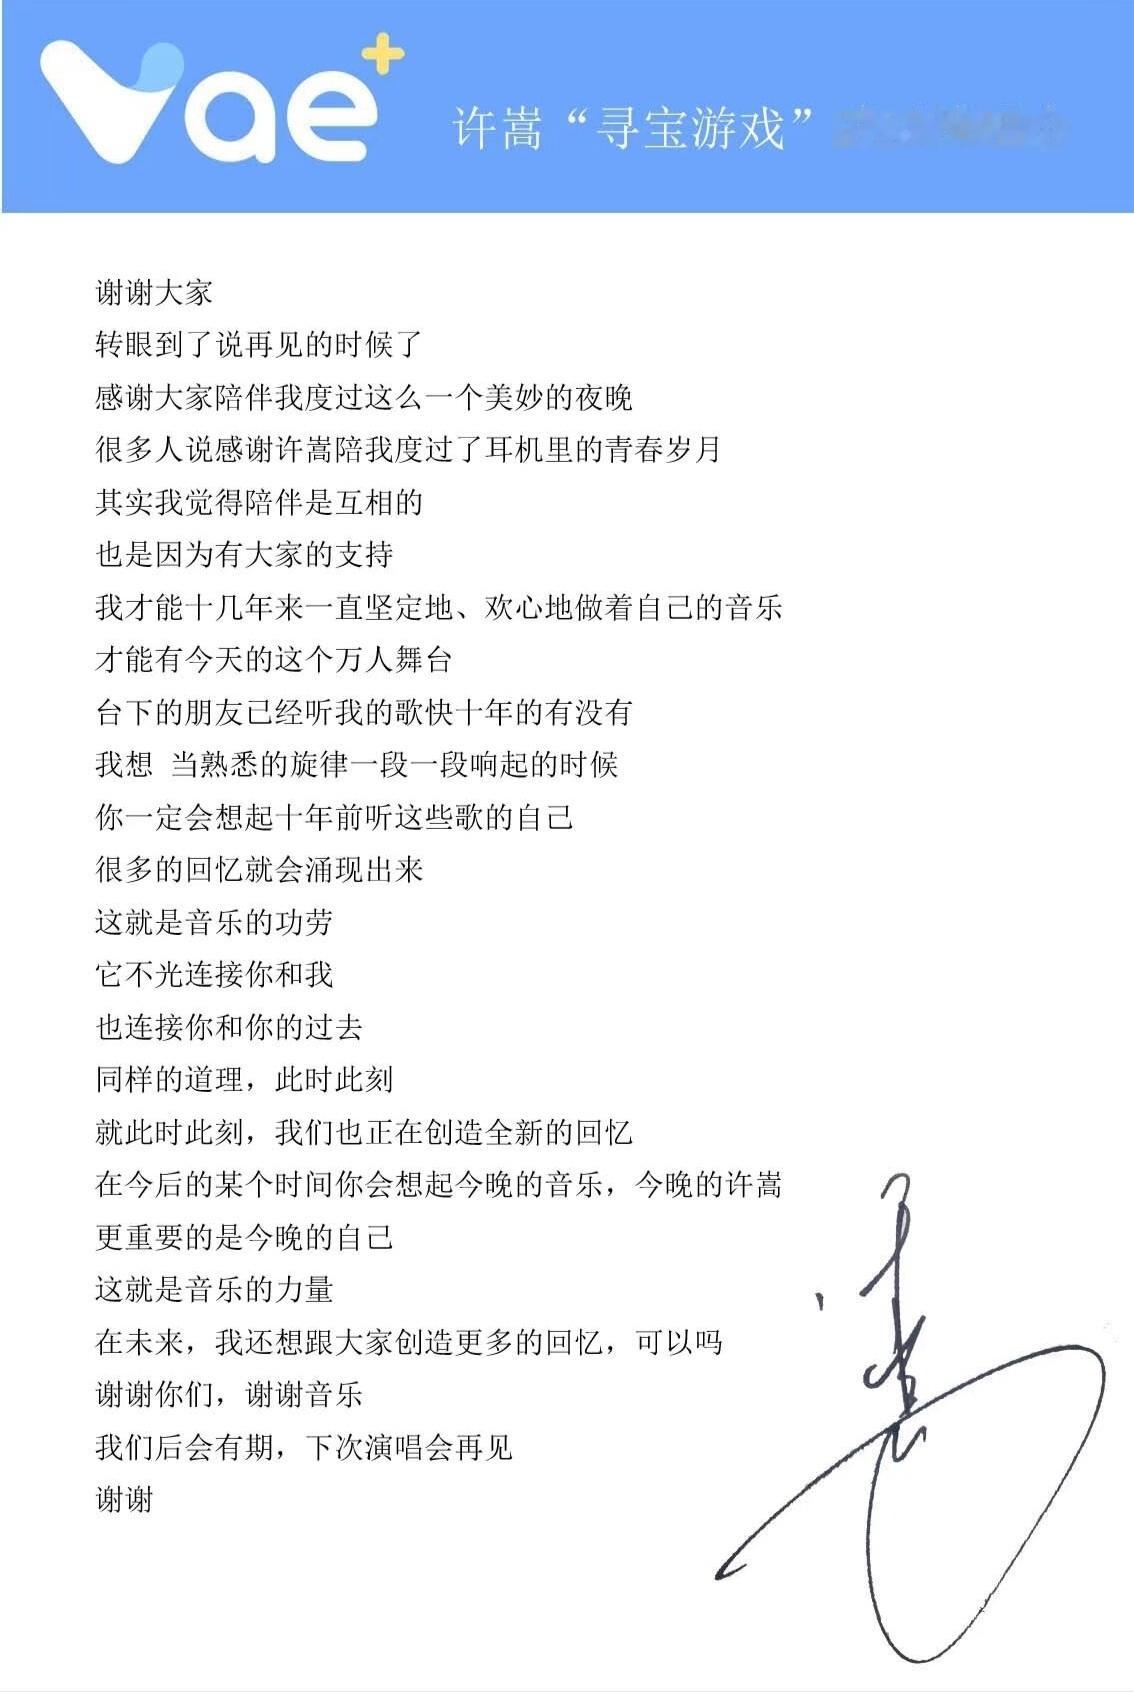 Vae+
许嵩“寻宝游戏”
谢谢大家
转眼到了说再见的时候了
感谢大家陪伴我度过这么一个美妙的夜晚
很多人说感谢许嵩陪我度过了耳机里的青春岁月
其实我觉得陪伴是互相的
也是因为有大家的支持
我才能十几年来一直坚定地、欢心地做着自己的音乐
才能有今天的这个万人舞台
台下的朋友已经听我的歌快十年的有没有
我想 当熟悉的旋律一段一段响起的时候
你一定会想起十年前听这些歌的自己
很多的回忆就会涌现出来
这就是音乐的功劳
它不光连接你和我
也连接你和你的过去
同样的道理，此时此刻
就此时此刻，我们也正在创造全新的回忆
在今后的某个时间你会想起今晚的音乐，今晚的许嵩
更重要的是今晚的自己
这就是音乐的力量
在未来，我还想跟大家创造更多的回忆，可以吗
谢谢你们，谢谢音乐
我们后会有期，下次演唱会再见
谢谢